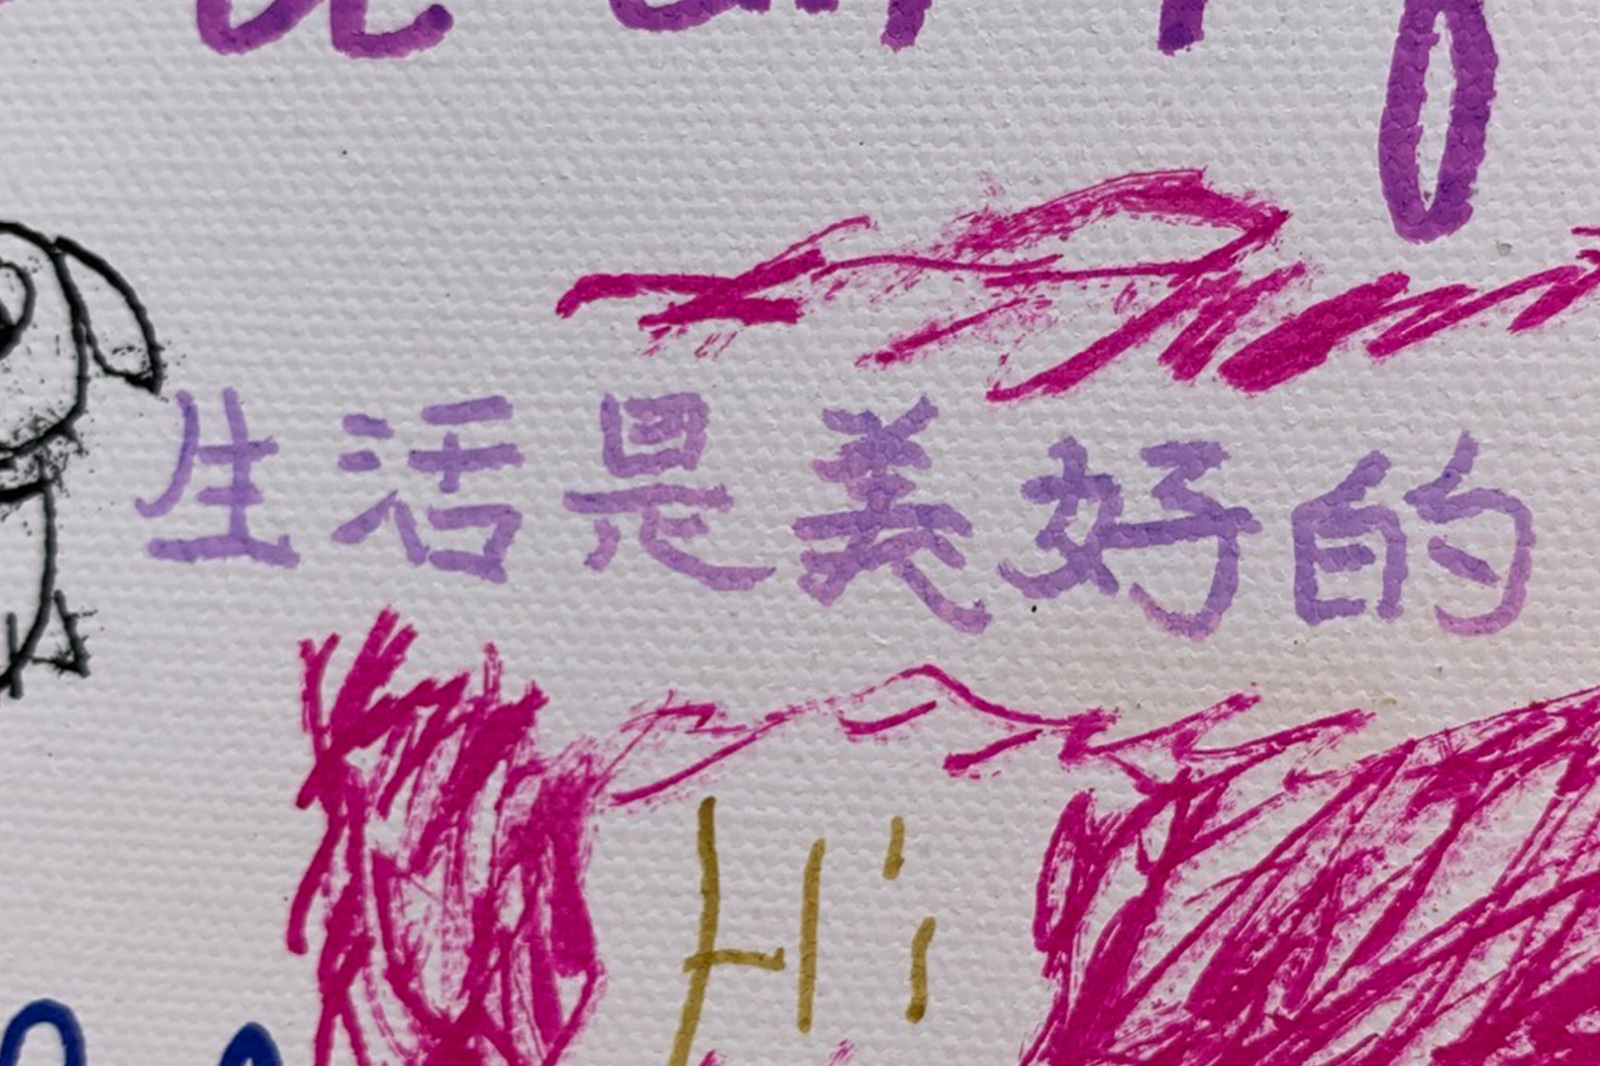 生活是美好的
Hi